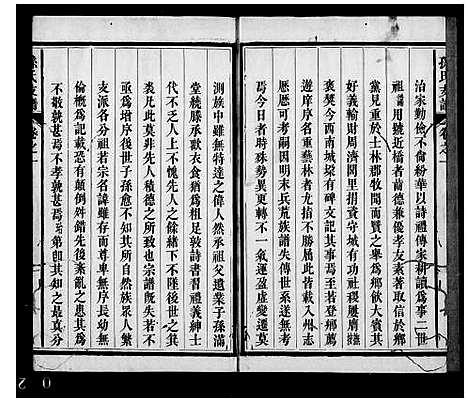 治家勤儉不尚紛華以詩禮傳家耕讀為事二世
祖
用號近橋者齒德兼優孝友素著取信於鄉
黨見重於士林郡牧聞而賢之舉為鄉飲大賓其
好義輸財周濟閭里捐資守城有功社稷屢膺
褒獎今西南城垛有碑文記其事焉至若登鄉薦
遊庠序名重藝林者尤指不勝屈此皆載入州志
歷歷可考嗣因明末兵荒族譜失傳世系遂無考
焉今日者時殊勢異更轉不一氣運盈虛變遷莫
測族中雖無特達之偉人然承祖父遺業子孫滿
堂繞膝承歡衣食猶為粗足敦詩書習禮義紳士
代不乏人上不愧先人之餘緒下不墜後世之箕
裘凡此莫非先人積德之所致也宗譜既失若不
亟為增序後世子孫愈不知其所自然族眾人繁
支派各分若祖若宗名諱雖存而尊卑無序長幼無
倫概為記載恐有顛倒舛錯先後紊亂之患其為
不敬孰甚焉不孝孰甚焉弟即其知之最真分
孫氏支譜
卷之一
孫氏支譜
卷之一
0 2